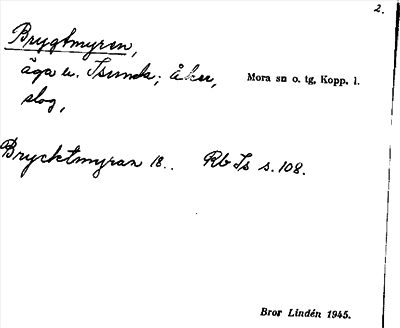 2.
Brygtmyren,
äga u. Isunda; åker,
slog,
Mora sn o. tg, Kopp. l.
Brycktmyran 18.. Rb Is s. 108.
Bror Lindén 1945.